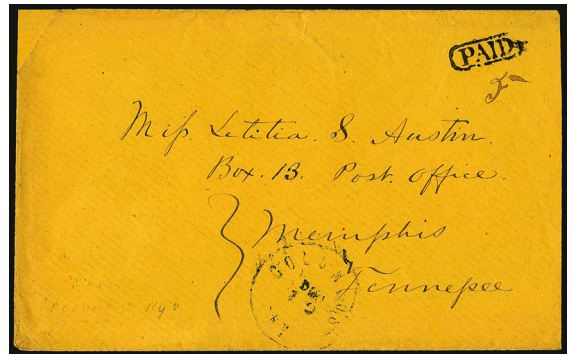 PAID
5
Miss. Letitia. S. Austin.
Box. 13. Post. Office.
Memphis
Tennessee
COLUM